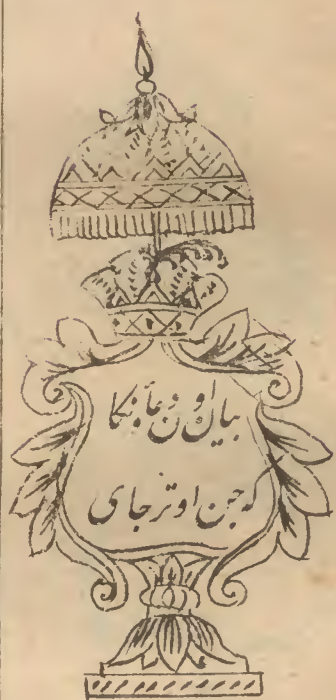 بیان اون دعاؤنکا
که جن اوتر جای